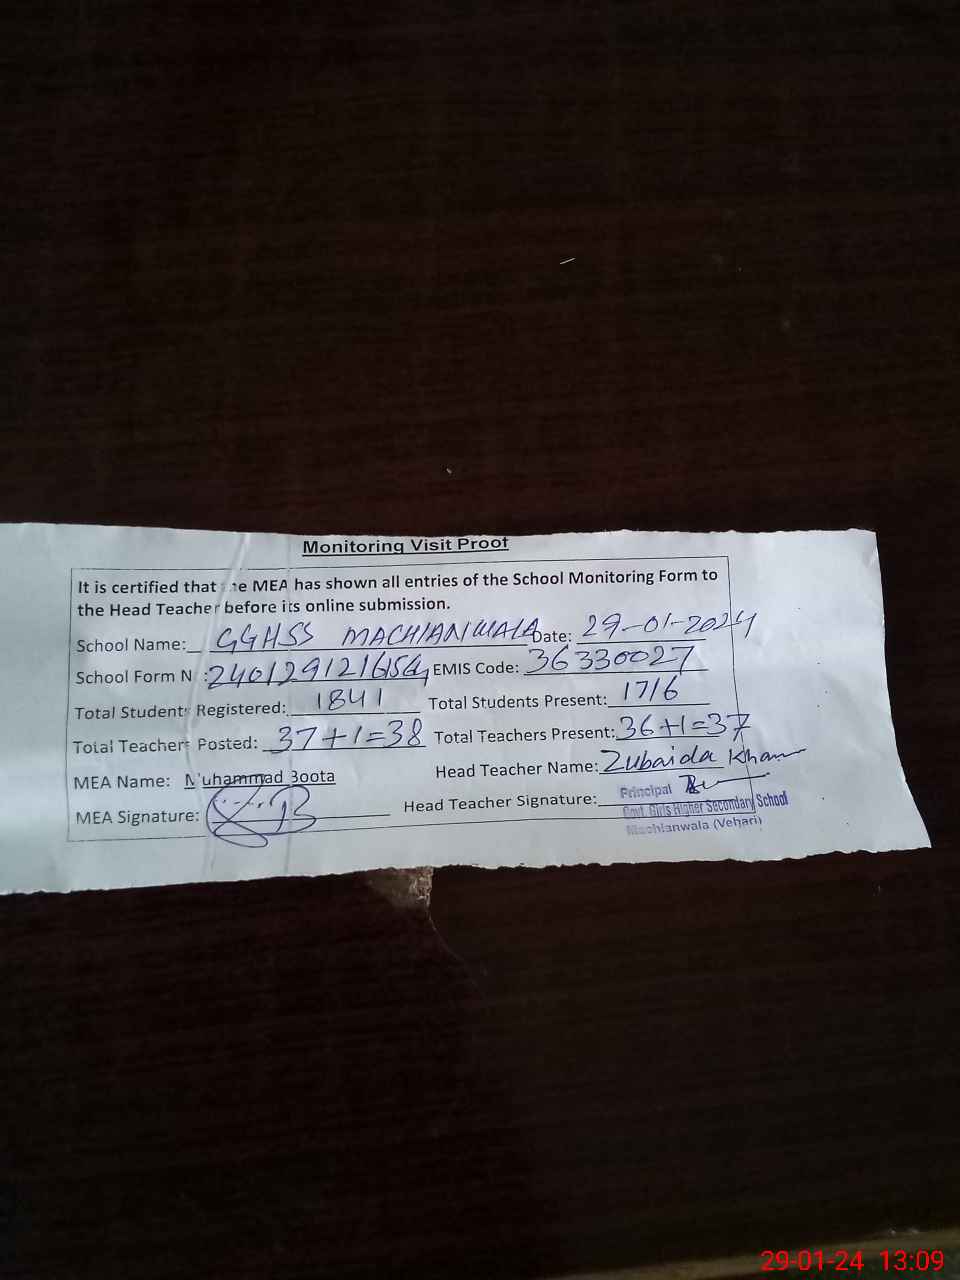 Monitoring Visit Proof
It is certified that he MEA has shown all entries of the School Monitoring Form to
the Head Teacher before its online submission.
School Name: GGHSS MACHIANWALA Date: 29-01-2024
School Form N : EMIS Code: 36330027
Total Students Registered: 1841 Total Students Present: 1716
Total Teachers Posted: 37+1=38 Total Teachers Present: 36+1=37
MEA Name: Muhammad Boota Head Teacher Name: Zubaida Khan
MEA Signature: Head Teacher Signature:
Principal
Govt. Girls Higher Secondary School
Machianwala (Vehari)
29-01-24 13:09